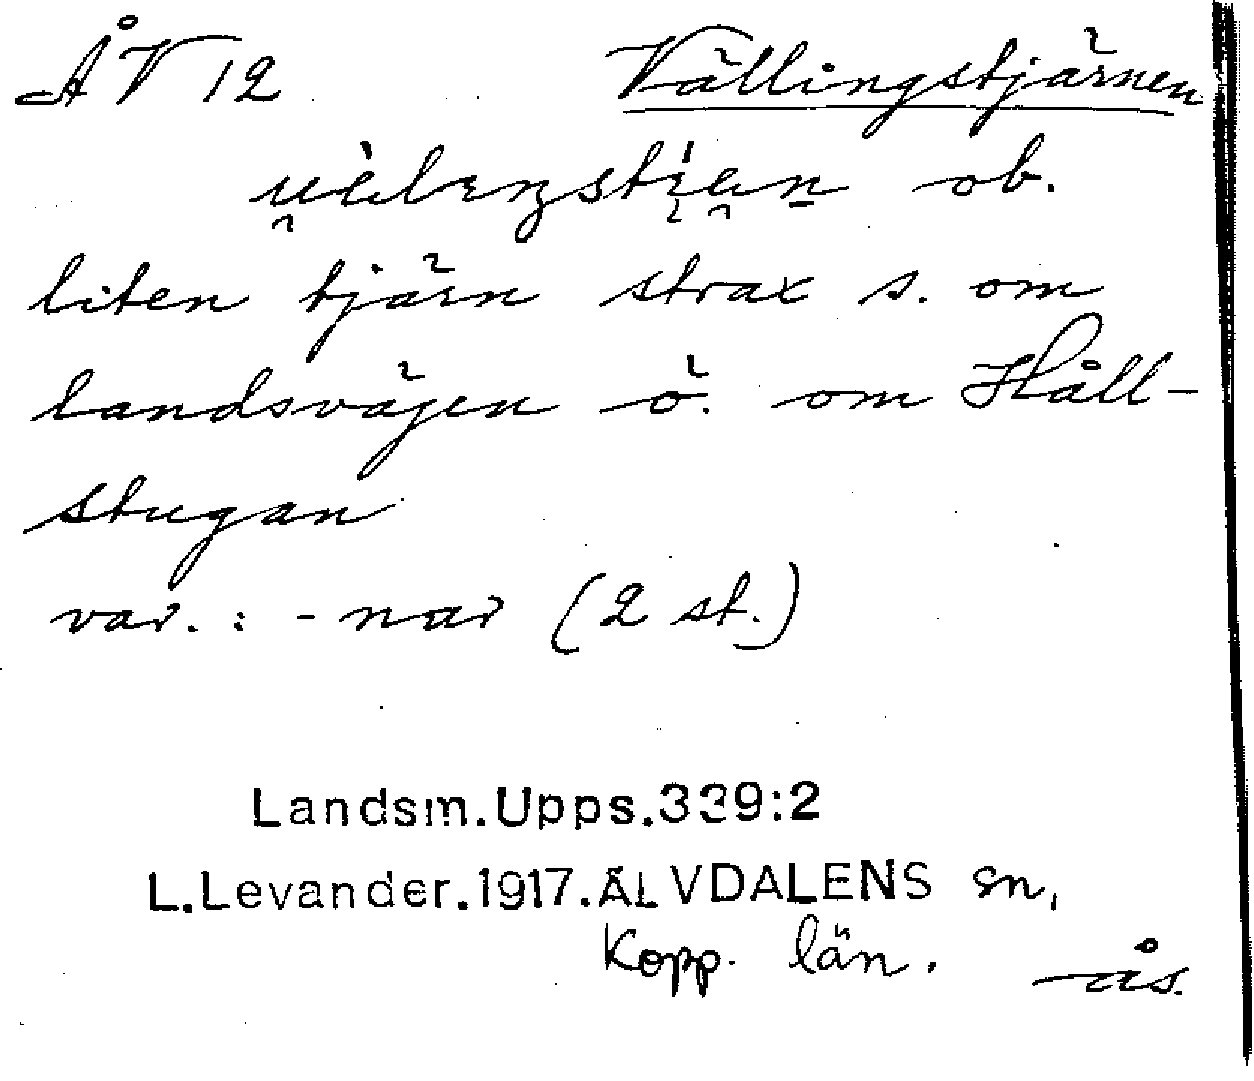 ÅV 12 Vällingstjärnen
ob.
liten tjärn strax s. om
landsvägen ö. om Håll-
stugan
var. : - nar (2 st.)
Landsm.Upps.339:2
L.Levander.1917.ÄLVDALENS sn,
Kopp. län.
ås.